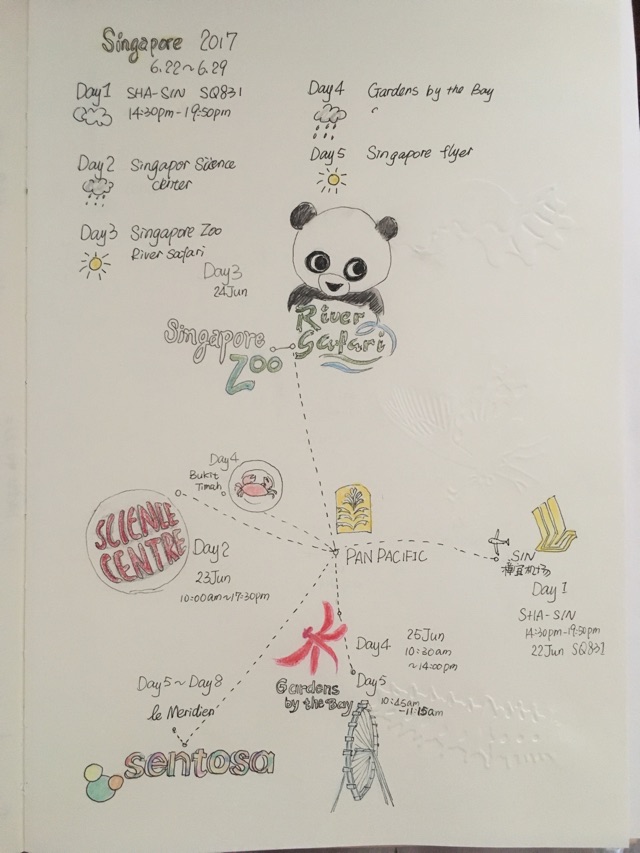 Singapore 2017
6.22~6.29
Day1 SHA-SIN SQ831
14:30pm-19:50pm
Day2 Singapor Science
Center
Day3 Singapore Zoo
River Safari
Day4 Gardens by the Bay
Day5 Singapore flyer
Day3
24Jun
Singapore
Zoo
River
Safari
Day4
Bukit
Timah
SCIENCE
CENTRE
Day2
23Jun
10:00am~17:30pm
PAN PACIFIC
SIN
Day1
SHA-SIN
14:30pm-19:50pm
22Jun SQ831
Gardens
by the Bay
Day4 25Jun
10:30am
~14:00pm
Day5
10:45am
-11:15am
Day5~Day8
le Meridien
sentosa